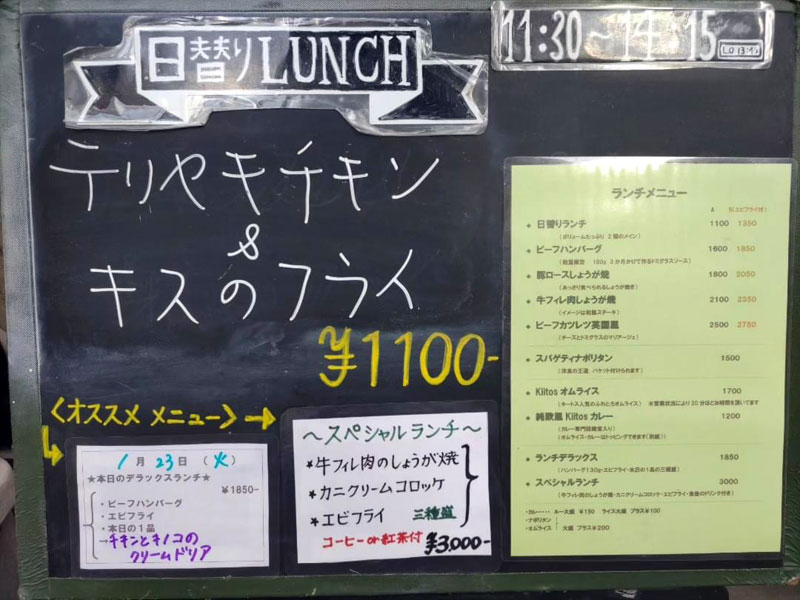 日替りLUNCH
11:30～14:15
テリヤキチキン
&
キスのフライ
¥1100-
〈オススメ メニュー〉→
1月23日（火）
★本日のデラックスランチ★
¥1850-
・ビーフハンバーグ
・エビフライ
・本日の1品
→チキンとキノコの
クリームドリア
～スペシャルランチ～
★牛フィレ肉のしょうが焼
★カニクリームコロッケ
★エビフライ 三種盛
コーヒーor紅茶付 ¥3,000-
ランチメニュー
A B(エビフライ付)
◆ 日替りランチ 1100 1350
(ボリュームたっぷり 2種のメイン)
◆ ビーフハンバーグ 1600 1850
(数量限定 180g 3か月かけて作るドミグラスソース)
◆ 豚ロースしょうが焼 1800 2050
(あっさり食べられるしょうが焼き)
◆ 牛フィレ肉しょうが焼 2100 2350
(イメージは和風ステーキ)
◆ ビーフカツレツ英国風 2500 2750
(チーズとドミグラスのマリアージュ)
◆ スパゲティナポリタン 1500
(洋食の王道 バケット付けられます)
◆ Kiitos オムライス 1700
(キートス人気のふわとろオムライス) ※営業状況により20分ほどお時間を頂いてます
◆ 純欧風 Kiitos カレー 1200
(オムライス・カレーはトッピングできます(別紙))
◆ ランチデラックス 1850
(ハンバーグ130g・エビフライ・本日の1品の三種盛)
◆ スペシャルランチ 3000
(牛フィレ肉のしょうが焼・カニクリームコロッケ・エビフライ・食後のドリンク付き)
・カレー・・・・ ルー大盛 ¥150 ライス大盛 プラス¥100
・ナポリタン
・オムライス 大盛 プラス¥200